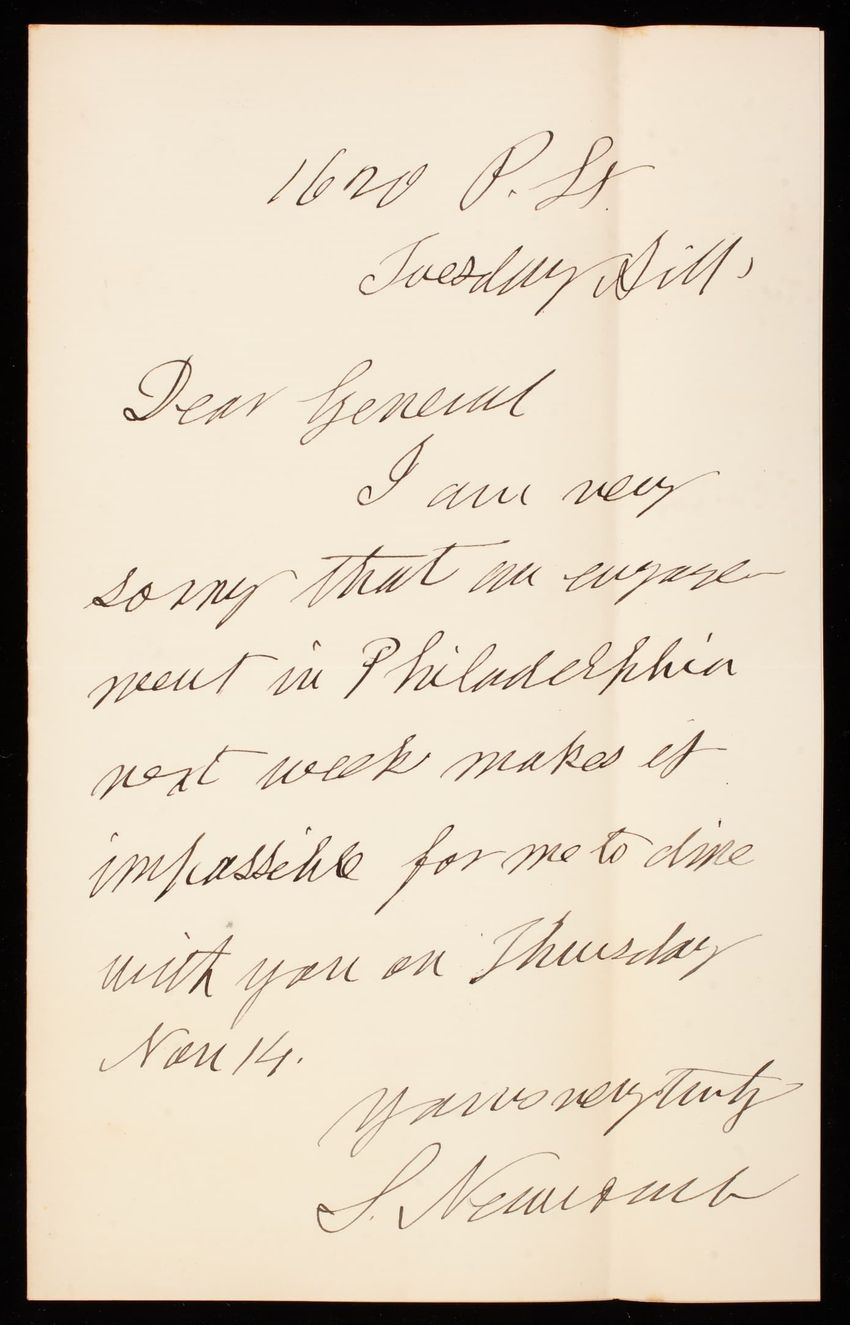 1620 P. St.
Tuesday
Dear General
I am very
sorry that an engage-
ment in Philadelphia
next week makes it
impossible for me to dine
with you on Thursday
Nov 14.
Yours very truly
S. Newcomb